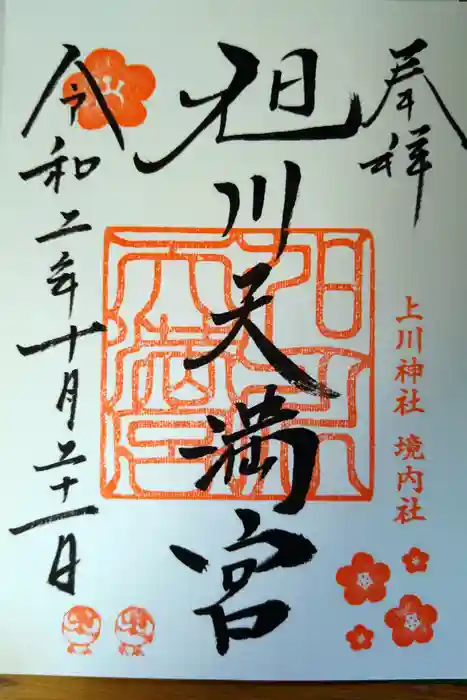 奉拝
上川神社 境内社
旭川天満宮
令和二年十月二十一日